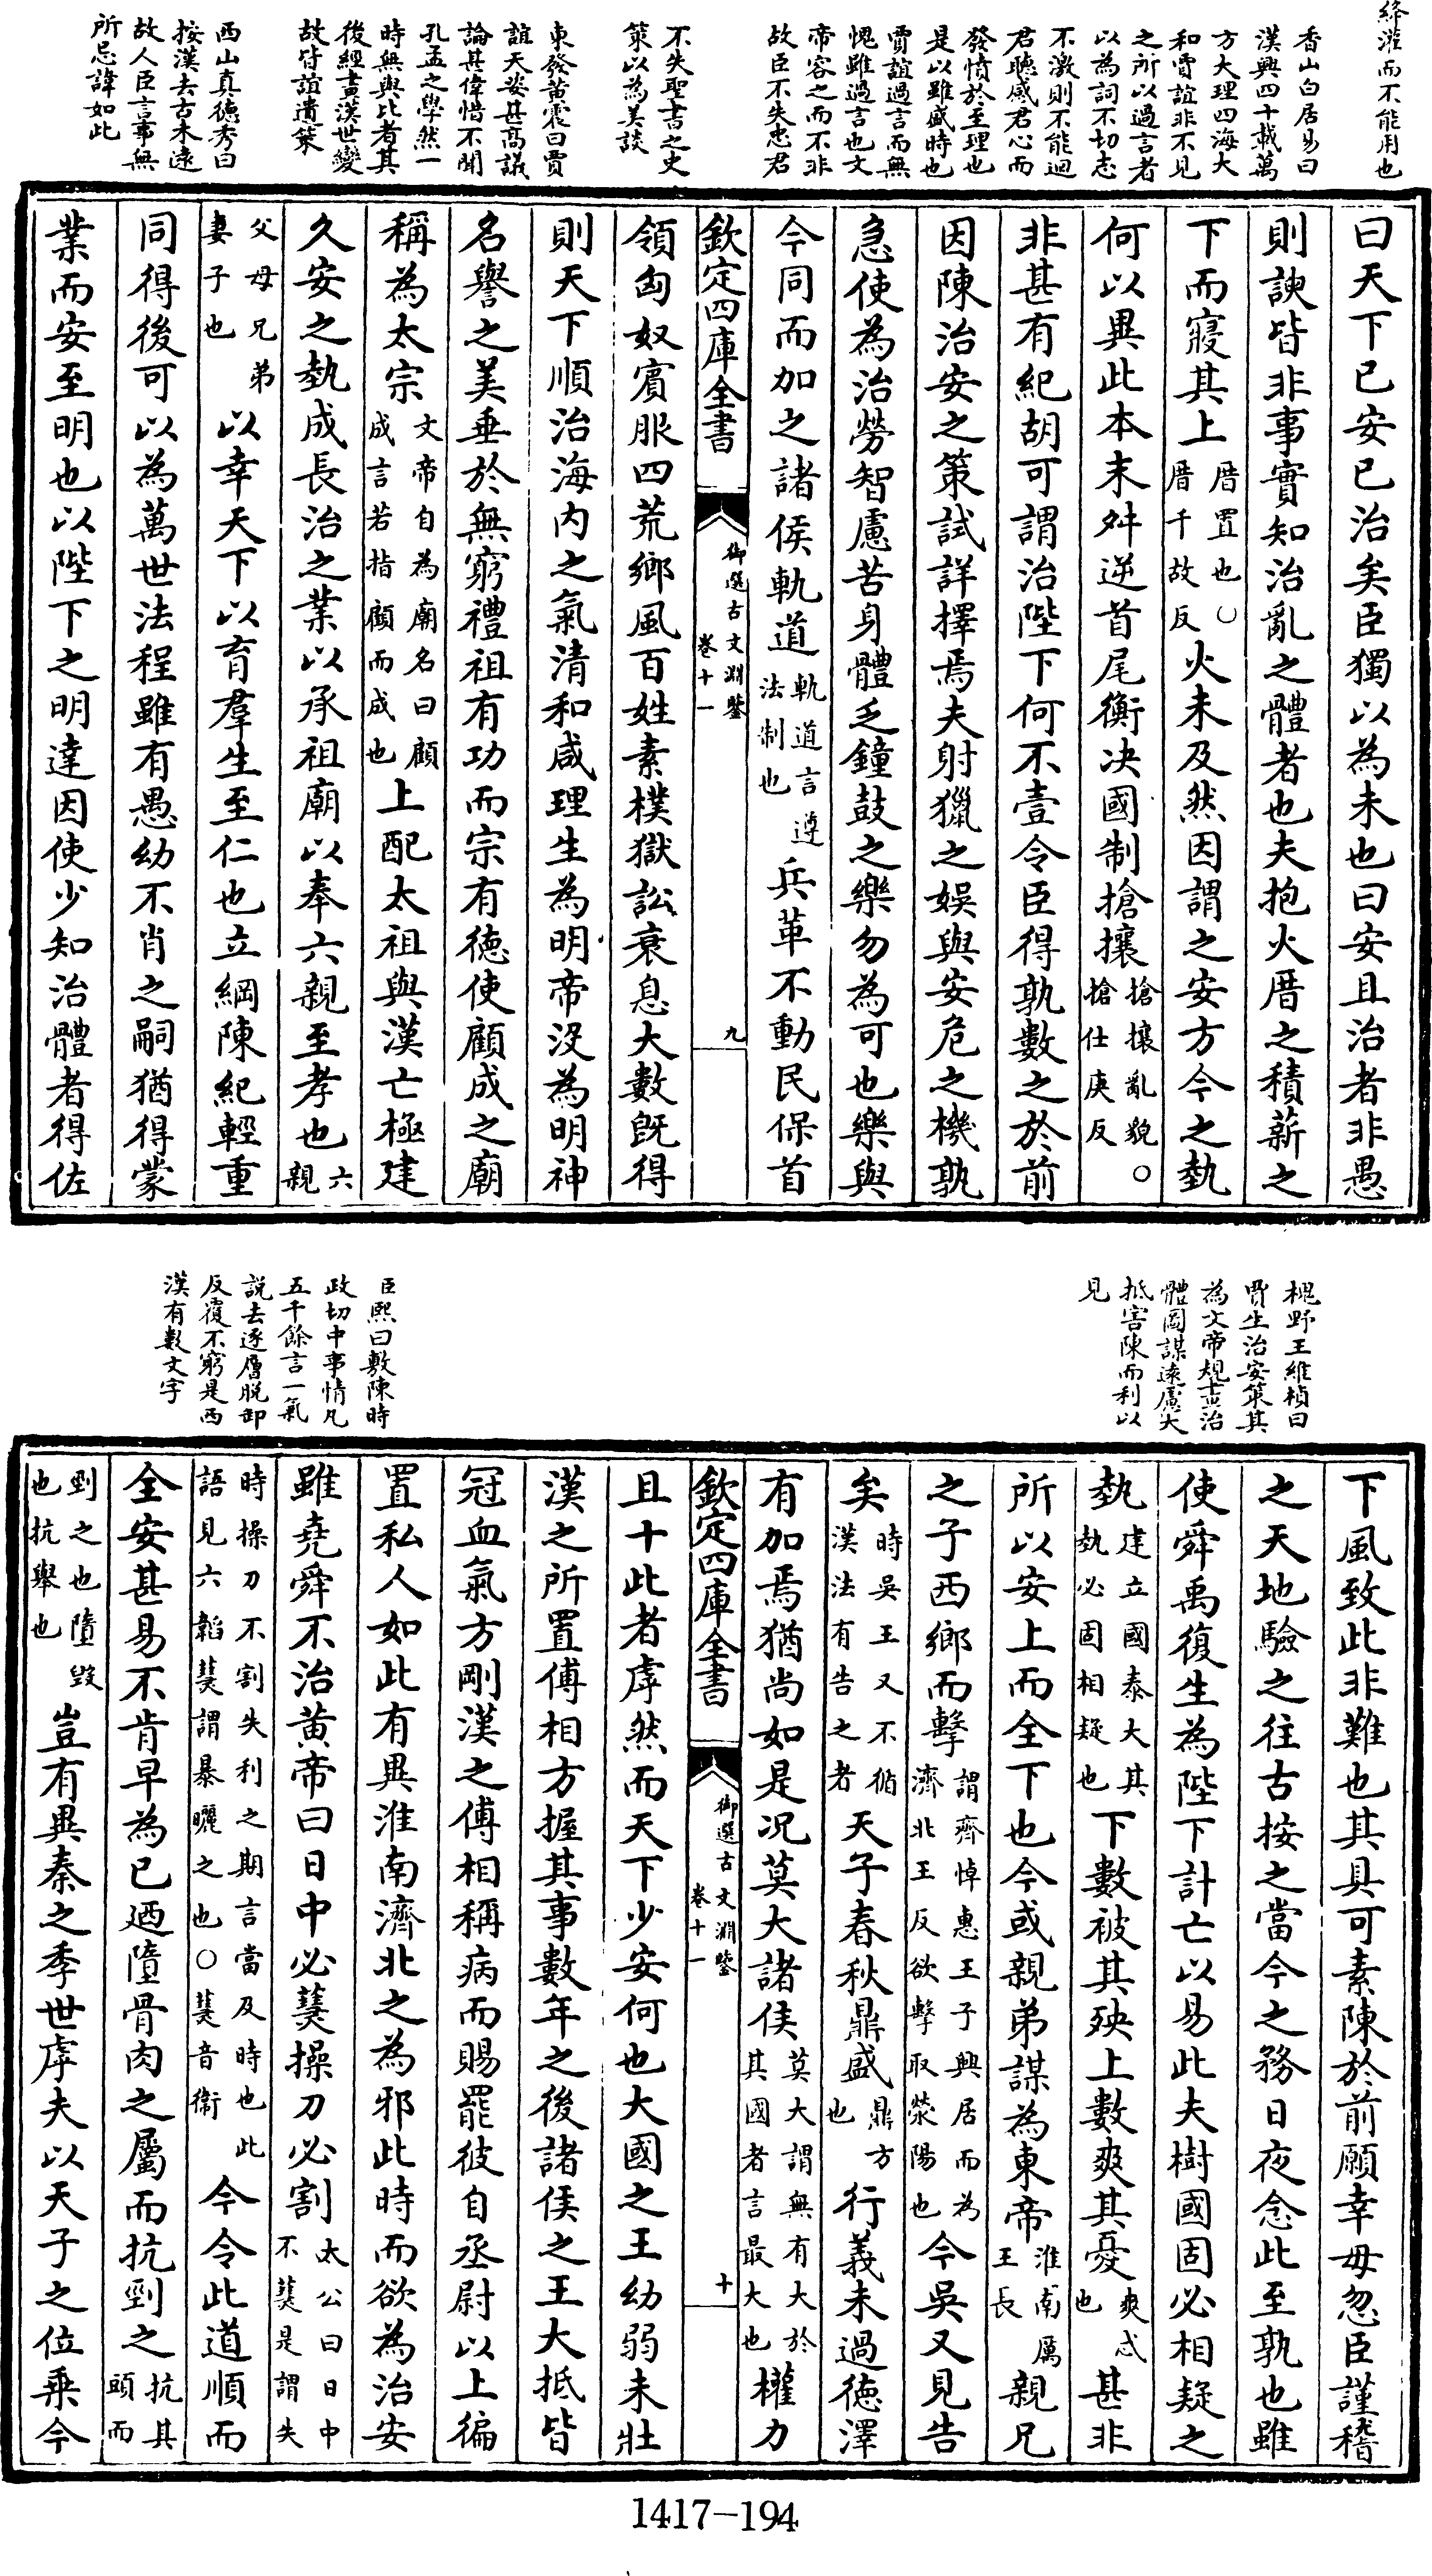 絳灌而不能用也
香山白居易曰
漢興四十載萬
方大理四海大
和賈誼非不見
之所以過言者
以為詞不切志
不激則不能迴
君聽感君心而
發憤於至理也
是以雖盛時也
賈誼過言而無
愧雖過言也文
帝容之而不非
故臣不失忠君
不失聖書之史
策以為美談
東發黄震曰賈
誼天姿甚髙議
論甚偉惜不聞
孔孟之學然一
時無與比者其
後經畫漢世變
故皆誼遺策
西山真徳秀曰
按漢去古未逺
故人臣言事無
所忌諱如此
曰天下已安已治矣臣獨以為未也曰安且治者非愚
則諛皆非事實知治亂之體者也夫抱火厝之積薪之
下而寢其上厝置也○厝千故反火未及然因謂之安方今之埶
何以異此本末舛逆首尾衡决國制搶攘搶攘亂貌○搶仕庚反
非甚有紀胡可謂治陛下何不壹令臣得孰數之於前
因陳治安之策試詳擇焉夫射獵之娛與安危之機孰
急使為治勞智慮苦身體乏鐘鼓之樂勿為可也樂與
今同而加之諸侯軌道軌道言遵法制也兵革不動民保首
欽定四庫全書
御選古文淵鑒
卷十一
九
領匈奴賓服四荒鄉風百姓素樸獄訟衰息大數既得
則天下順治海内之氣清和咸理生為明帝沒為明神
名譽之美垂於無窮禮祖有功而宗有徳使顧成之廟
稱為太宗文帝自為廟名曰顧成言若指顧而成也上配太祖與漢亡極建
久安之埶成長治之業以承祖廟以奉六親至孝也六親
父母兄弟妻子也以幸天下以育羣生至仁也立綱陳紀輕重
同得後可以為萬世法程雖有愚幼不肖之嗣猶得蒙
業而安至明也以陛下之明達因使少知治體者得佐
槐野王維楨曰
賈生治安策其
為文帝規畫治
體圖謀逺慮大
抵害陳而利以
見
臣熙曰敷陳時
政切中事情凡
五千餘言一氣
説去逐層脱卸
反覆不窮是西
漢有數文字
下風致此非難也其具可素陳於前願幸毋忽臣謹稽
之天地驗之往古按之當今之務日夜念此至孰也雖
使舜禹復生為陛下計亡以易此夫樹國固必相疑之
埶建立國泰大其埶必固相疑也下數被其殃上數爽其憂爽忒也甚非
所以安上而全下也今或親弟謀為東帝淮南厲王長親兄
之子西鄉而擊謂齊悼惠王子興居而為濟北王反欲擊取滎陽也今吳又見告
矣時吳王又不循漢法有告之者天子春秋鼎盛鼎方也行義未過徳澤
有加焉猶尚如是況莫大諸侯莫大謂無有大於其國者言最大也權力
欽定四庫全書
御選古文淵鑒
卷十一
十
且十此者虖然而天下少安何也大國之王幼弱未壯
漢之所置傅相方握其事數年之後諸侯之王大抵皆
冠血氣方剛漢之傅相稱病而賜罷彼自丞尉以上徧
置私人如此有異淮南濟北之為邪此時而欲為治安
雖堯舜不治黄帝曰日中必熭操刀必割太公曰日中不熭是謂失
時操刀不割失利之期言當及時也此語見六韜熭謂暴曬之也○熭音衞今令此道順而
全安甚易不肯早為已迺墮骨肉之屬而抗剄之抗其頭而
剄之也墮毀也抗舉也豈有異秦之季世虖夫以天子之位乘今
1417-194